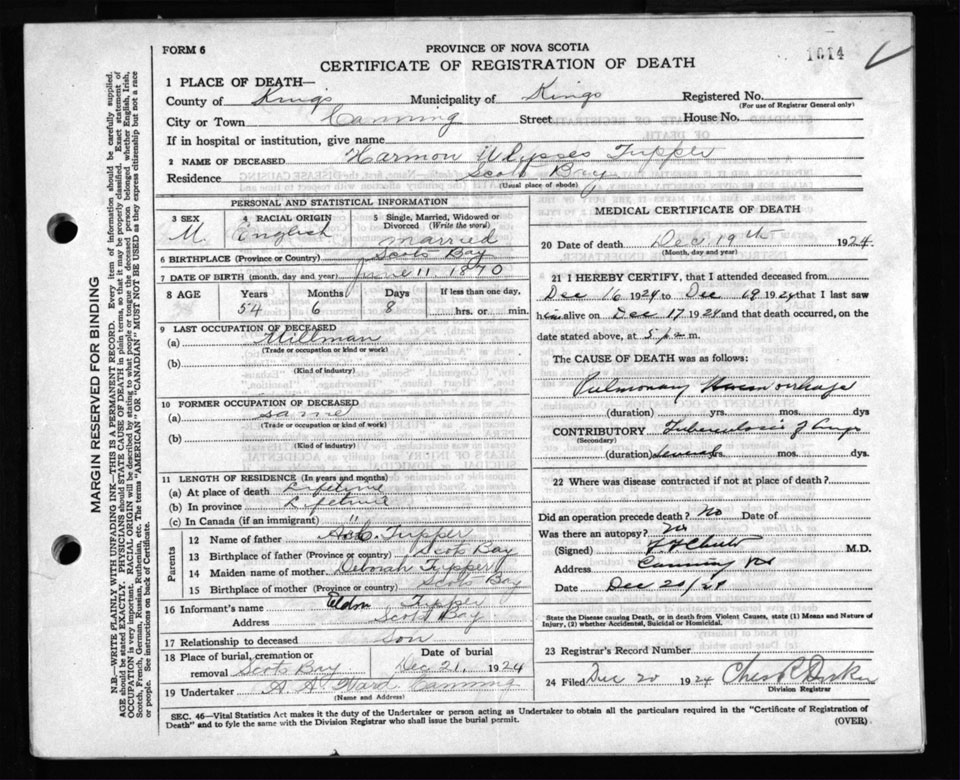 FORM 6
PROVINCE OF NOVA SCOTIA
1014
CERTIFICATE OF REGISTRATION OF DEATH
1 PLACE OF DEATH—
County of Kings Municipality of Kings Registered No.
(For use of Registrar General only)
City or Town Canning Street House No.
If in hospital or institution, give name
2 NAME OF DECEASED Harmon Ulysses Tupper
Residence Scots Bay
(Usual place of abode)
PERSONAL AND STATISTICAL INFORMATION
3 SEX 4 RACIAL ORIGIN 5 Single, Married, Widowed or Divorced (Write the word)
M. English Married
6 BIRTHPLACE (Province or Country) Scots Bay
7 DATE OF BIRTH (month, day and year) June 11, 1870
8 AGE Years Months Days If less than one day,
54 6 8 hrs. or min.
9 LAST OCCUPATION OF DECEASED
(a) Millman
(Trade or occupation or kind of work)
(b)
(Kind of industry)
10 FORMER OCCUPATION OF DECEASED
(a) same
(Trade or occupation or kind of work)
(b)
(Kind of industry)
11 LENGTH OF RESIDENCE (In years and months)
(a) At place of death Lifetime
(b) In province Lifetime
(c) In Canada (if an immigrant) "
Parents
12 Name of father Tupper
13 Birthplace of father (Province or country) Scots Bay
14 Maiden name of mother Deborah Tupper
15 Birthplace of mother (Province or country) Scots Bay
16 Informant's name Eldon Tupper
Address Scots Bay
17 Relationship to deceased Son
18 Place of burial, cremation or removal Scots Bay Date of burial Dec 21, 1924
19 Undertaker A. A. Ward Canning
(Name and Address)
MEDICAL CERTIFICATE OF DEATH
20 Date of death Dec. 19th 1924
(Month, day and year)
21 I HEREBY CERTIFY, that I attended deceased from
Dec 16 1924 to Dec 19 1924 that I last saw
him alive on Dec 17 1924 and that death occurred, on the
date stated above, at 5 a m.
The CAUSE OF DEATH was as follows:
Pulmonary Haemorrhage
(duration) yrs. mos. dys
CONTRIBUTORY Tuberculosis of lungs
(Secondary)
(duration) several yrs. mos. dys
22 Where was disease contracted if not at place of death?
Did an operation precede death? No Date of
Was there an autopsy? No
(Signed) M.D.
Address Canning NS
Date Dec 20/24
State the Disease causing Death, or in death from Violent Causes, state (1) Means and Nature of
Injury, (2) whether Accidental, Suicidal or Homicidal.
23 Registrar's Record Number
24 Filed Dec 20 1924
Division Registrar
SEC. 46—Vital Statistics Act makes it the duty of the Undertaker or person acting as Undertaker to obtain all the particulars required in the "Certificate of Registration of
Death" and to fyle the same with the Division Registrar who shall issue the burial permit.
(OVER)
MARGIN RESERVED FOR BINDING
N.B.—WRITE PLAINLY WITH UNFADING INK—THIS IS A PERMANENT RECORD. Every item of information should be carefully supplied.
AGE should be stated EXACTLY. PHYSICIANS should STATE CAUSE OF DEATH in plain terms, so that it may be properly classified. Exact statement of
OCCUPATION is very important. RACIAL ORIGIN will be described by stating to what people or tongue the deceased person belonged whether English, Irish,
Scotch, French, German, Russian, Ruthenian, etc. The terms "AMERICAN" OR "CANADIAN" MUST NOT BE USED as they express citizenship but not a race
or people. See instructions on back of Certificate.